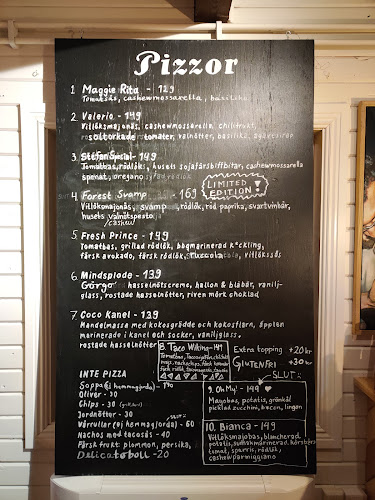 Pizzor
1 Maggie Rita - 129
Tomatsås, cashewmossarella, basilika
2. Valerio - 149
Vitlöksmajonäs, cashewmossarella, chilifrukt,
soltorkade tomater, valnötter, basilika,
3. Stefan Spesial - 149
Tomatbas, rödlök, husets sojafärsbiffbitar, cashewmossarella
spenat, oregano
4 Forest Svamp - 169
LIMITED EDITION!
Vitlöksmajonäs, svamp, rödlök, röd paprika, svartvinbär,
husets valnötspesto
cashew
5. Fresh Prince - 149
Tomatbas, grillad rödlök, bbqmarinerad k*ckling,
färsk avokado, färsk rödlök, ruccola, vitlökssås
6. Mindsplode - 139
Görgo hasselnötscreme, hallon & blåbär, vanilj-
glass, rostade hasselnötter, riven mörk choklad
7. Coco Kanel - 139
Mandelmassa med kokosgrädde och kokosflarn, äpplen
marinerade i kanel och socker, vaniljglass,
rostade hasselnötter
8. Taco Wiking - 149
Extra topping +20 kr
Glutenfri +30 kr
SLUT:
9. Oh My! - 149
Majobas, potatis, grönkål
picklad zucchini, bacon, lingon
10. Bianca - 149
Vitlöksmajobas, blancherad
potatis,
tomat, sparris, rödlök,
cashewparmiggiano
INTE PIZZA
Soppa (ej hemmagjorda) -
Oliver - 30
Chips - 30
Jordnötter - 30
Vårrullar (ej hemmagjorda) - 60
Nachos med tacosås - 40
Färsk frukt: plommon, persika,
Delicatoboll - 20